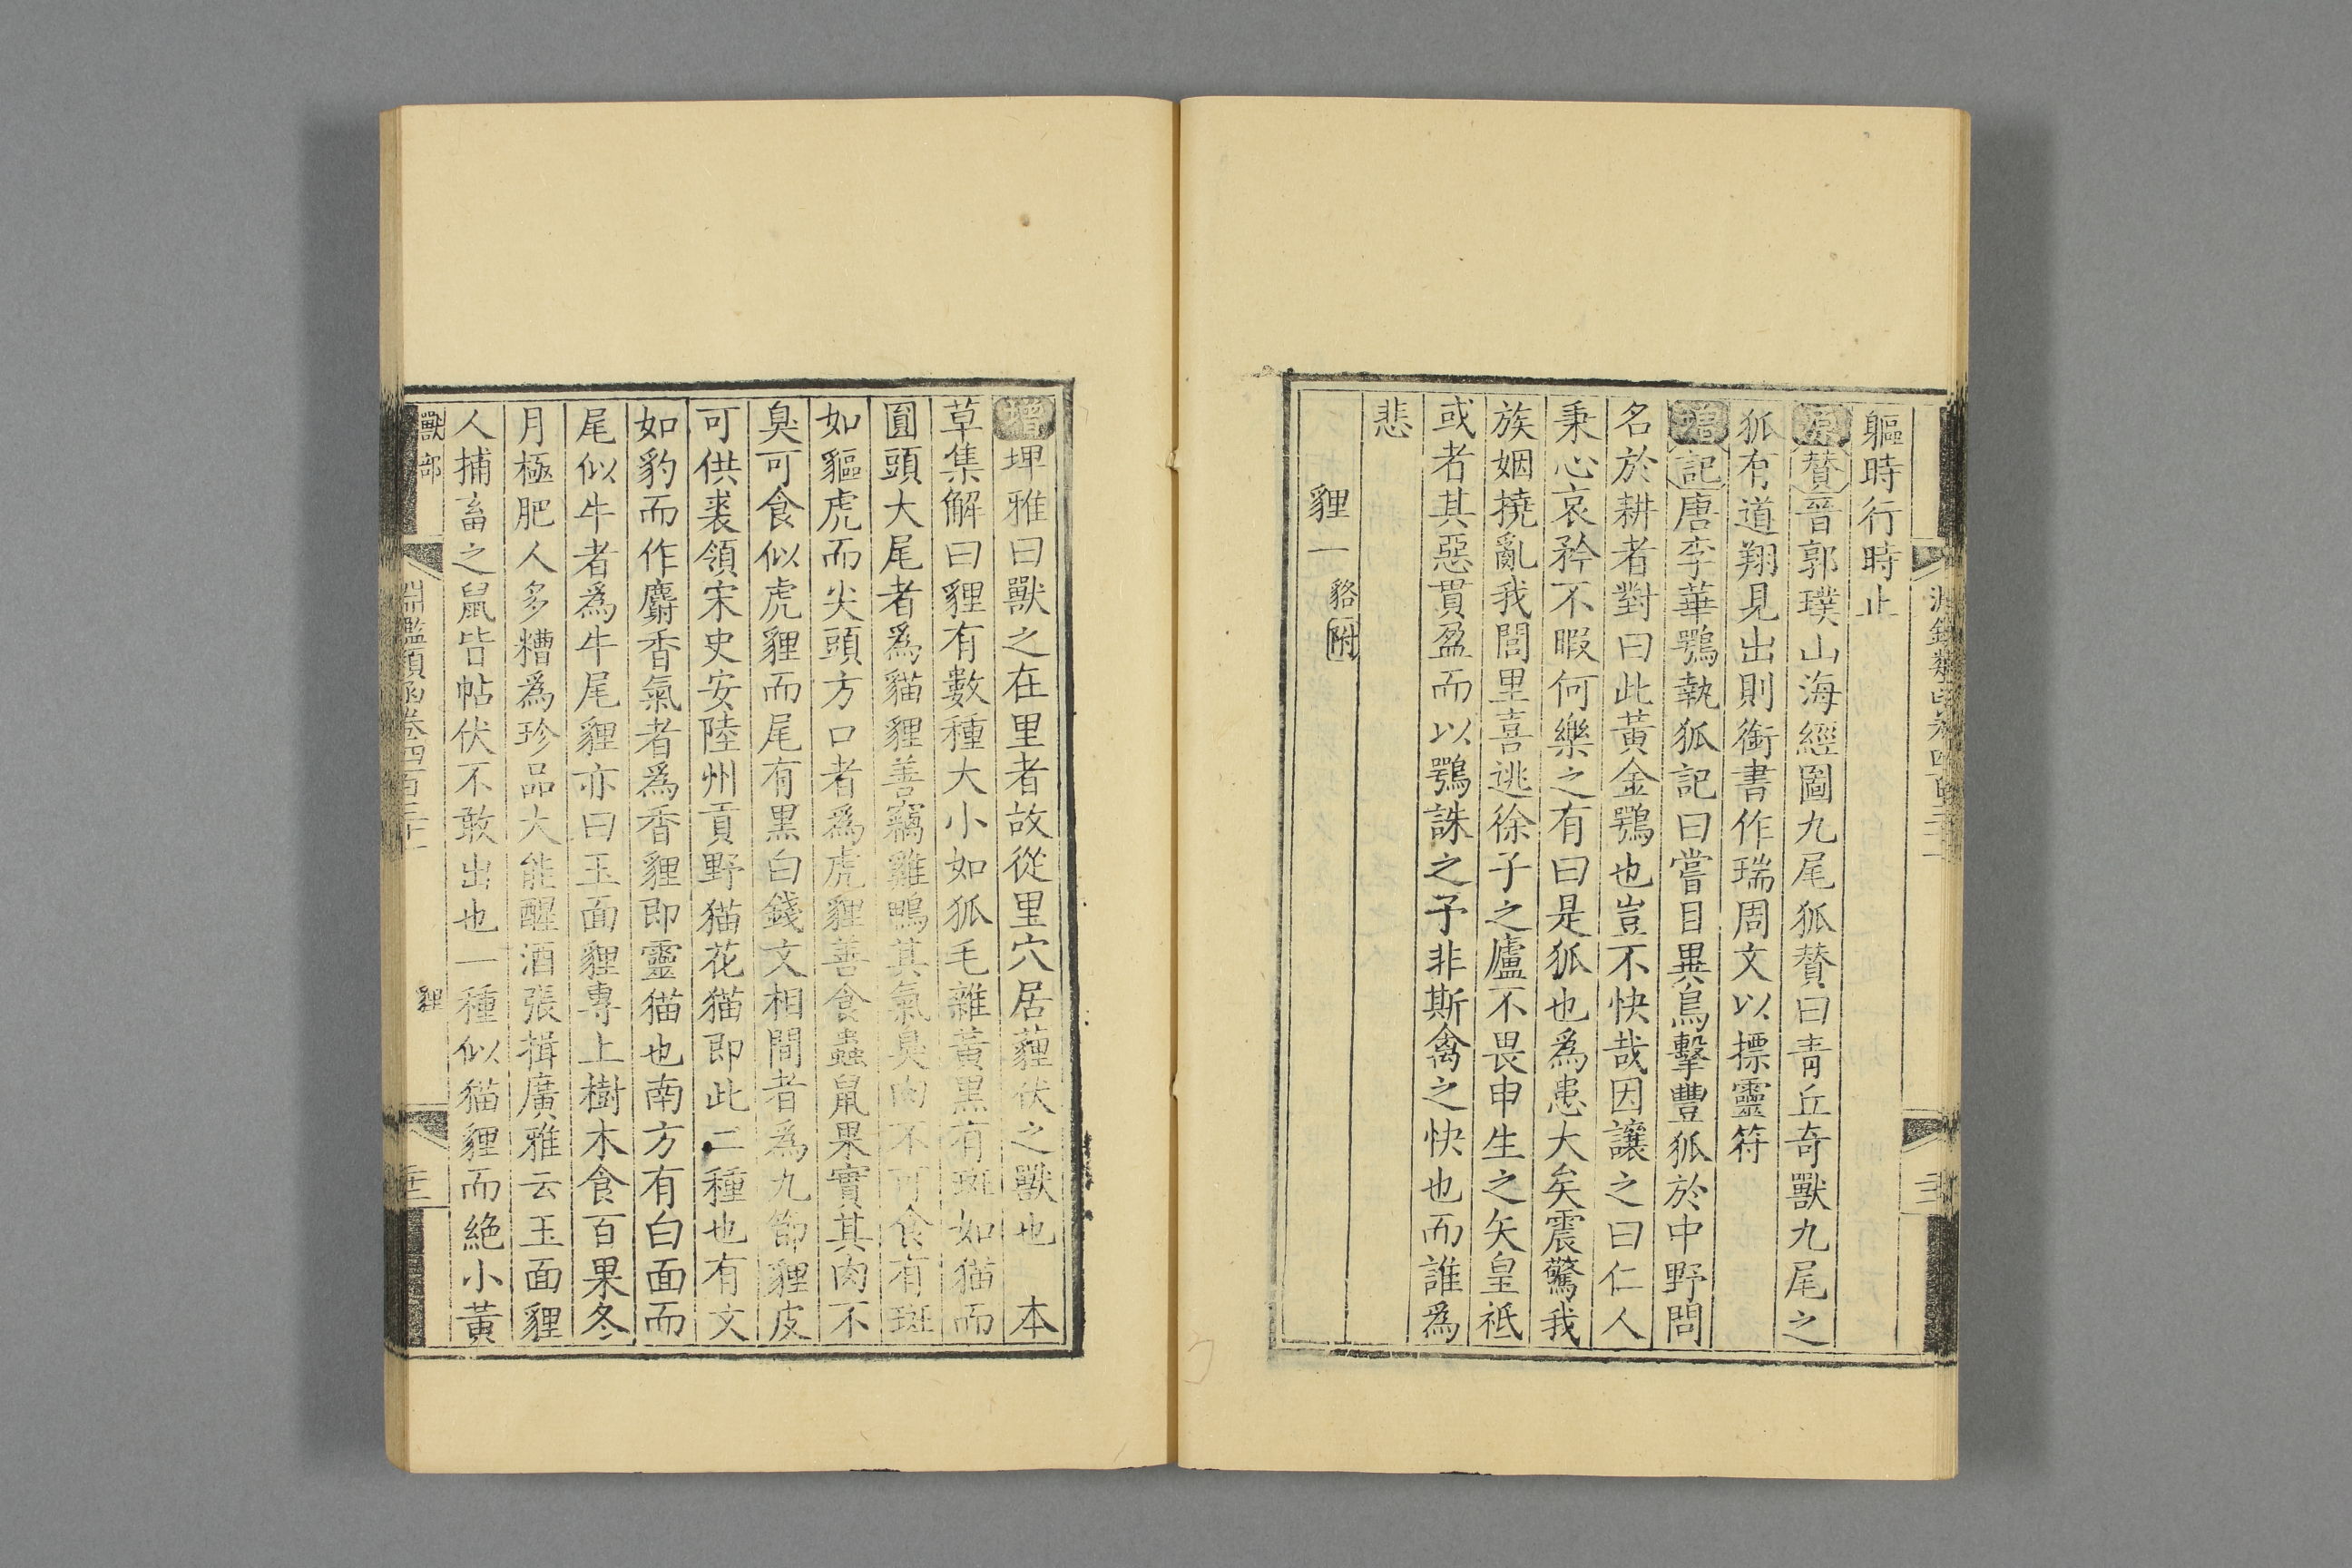 軀時行時止
原贊晉郭璞山海經圖九尾狐贊曰青丘奇獸九尾之
狐有道翔見出則銜書作瑞周文以摽靈符
增記唐李華鶚執狐記曰嘗目異鳥擊豐狐於中野問
名於耕者對曰此黃金鶚也豈不快哉因讓之曰仁人
秉心哀矜不暇何樂之有曰是狐也為患大矣震驚我
族姻撓亂我閭里喜逃徐子之廬不畏申生之矢皇祗
或者其惡貫盈而以鶚誅之予非斯禽之快也而誰為
悲
貍一 貉附
增埤雅曰獸之在里者故從里穴居薶伏之獸也 本
草集解曰貍有數種大小如狐毛雜黃黑有斑如猫而
圓頭大尾者為貓貍善竊雞鴨其氣臭肉不可食有斑
如貙虎而尖頭方口者為虎貍善食蟲鼠果實其肉不
臭可食似虎貍而尾有黑白錢文相間者為九節貍皮
可供裘領宋史安陸州貢野猫花猫即此二種也有文
如豹而作麝香氣者為香貍即靈猫也南方有白面而
尾似牛者為牛尾貍亦曰玉面貍專上樹木食百果冬
月極肥人多糟為珍品大能醒酒張揖廣雅云玉面貍
人捕畜之鼠皆帖伏不敢出也一種似猫貍而絶小黃
獸部 淵鑑類函卷四百三十一 貍